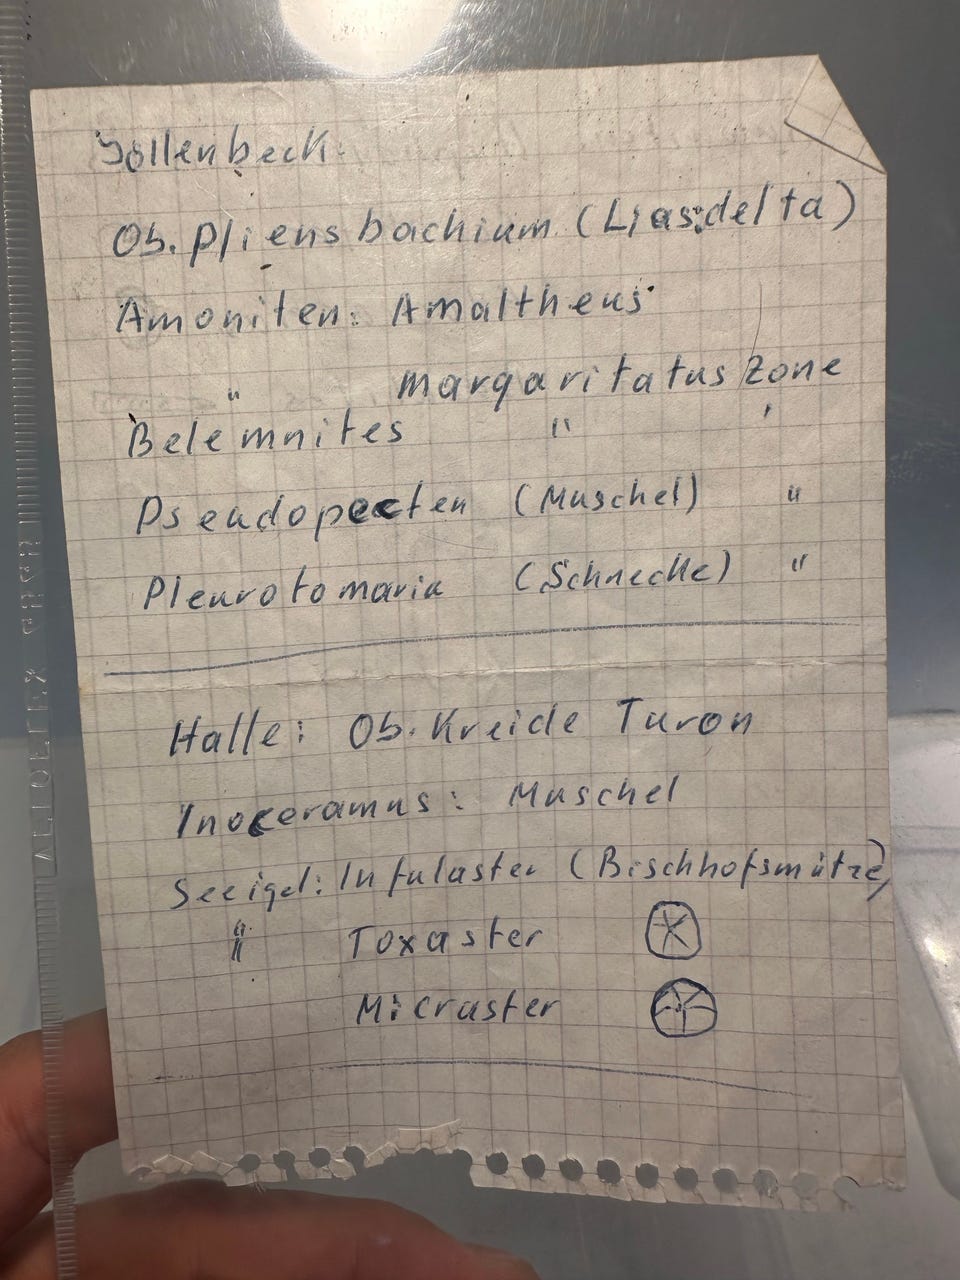 Jöllenbeck.
Ob. Pliensbachium (Lias;delta)
Amoniten: Amaltheus
" margaritatus Zone
Belemnites " '
Pseudopecten (Muschel) "
Pleurotomaria (Schnecke) "
Halle: Ob. Kreide Turon
Inoceramus: Muschel
Seeigel: Infulaster (Bischhofsmütze)
" Toxaster
Micraster